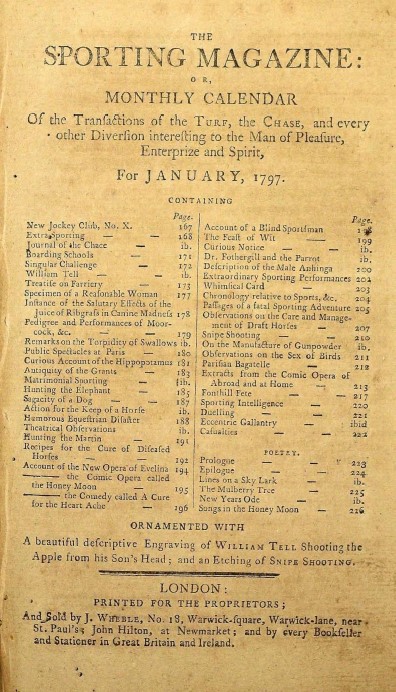 THE
SPORTING MAGAZINE:
OR,
MONTHLY CALENDAR
Of the Tranſactions of the TURF, the CHASE, and every
other Diverſion intereſting to the Man of Pleaſure,
Enterprize and Spirit,
For JANUARY, 1797.
CONTAINING
Page.
New Jockey Club, No. X. 167
Extra Sporting — 168
Journal of the Chace — ib.
Boarding Schools — 171
Singular Challenge — 172
William Tell — ib.
Treatiſe on Farriery — 173
Specimen of a Reaſonable Woman 177
Inſtance of the Salutary Effects of the
Juice of Ribgraſs in Canine Madneſs 178
Pedigree and Performances of Moor-
cock, &c. — 179
Remarks on the Torpidity of Swallows ib.
Public Spectacles at Paris — 180
Curious Account of the Hippopotamus 181
Antiquity of the Grands — 183
Matrimonial Sporting — ib.
Hunting the Elephant — 185
Sagacity of a Dog — 187
Action for the Keep of a Horſe ib.
Humorous Equeſtrian Diſaſter 188
Theatrical Obſervations — ib.
Hunting the Martin — 191
Recipes for the Cure of Diſeaſed
Horſes — 192
Account of the New Opera of Evelina 194
——— the Comic Opera called
the Honey Moon 195
——— the Comedy called A Cure
for the Heart Ache — 196
Page.
Account of a Blind Sportſman
The Feaſt of Wit — 199
Curious Notice — ib.
Dr. Fothergill and the Parrot ib.
Deſcription of the Male Anhinga 200
Extraordinary Sporting Performances 202
Whimſical Card — 203
Chronology relative to Sports, &c. 204
Paſſages of a fatal Sporting Adventure 205
Obſervations on the Care and Manage-
ment of Draft Horſes — 207
Snipe Shooting — 210
On the Manufacture of Gunpowder ib.
Obſervations on the Sex of Birds 211
Pariſian Bagatelle — 212
Extracts from the Comic Opera of
Abroad and at Home — 213
Fonthill Fete — 217
Sporting Intelligence — 220
Duelling — 221
Eccentric Gallantry — ibid
Caſualties — 222
POETRY.
Prologue — 223
Epilogue — 224
Lines on a Sky Lark — ib.
The Mulberry Tree — 225
New Years Ode — ib.
Songs in the Honey Moon — 226
ORNAMENTED WITH
A beautiful deſcriptive Engraving of WILLIAM TELL Shooting the
Apple from his Son's Head; and an Etching of SNIPE SHOOTING.
LONDON:
PRINTED FOR THE PROPRIETORS;
And Sold by J. WHEBLE, No. 18, Warwick-ſquare, Warwick-lane, near
St. Paul's; John Hilton, at Newmarket; and by every Bookſeller
and Stationer in Great Britain and Ireland.